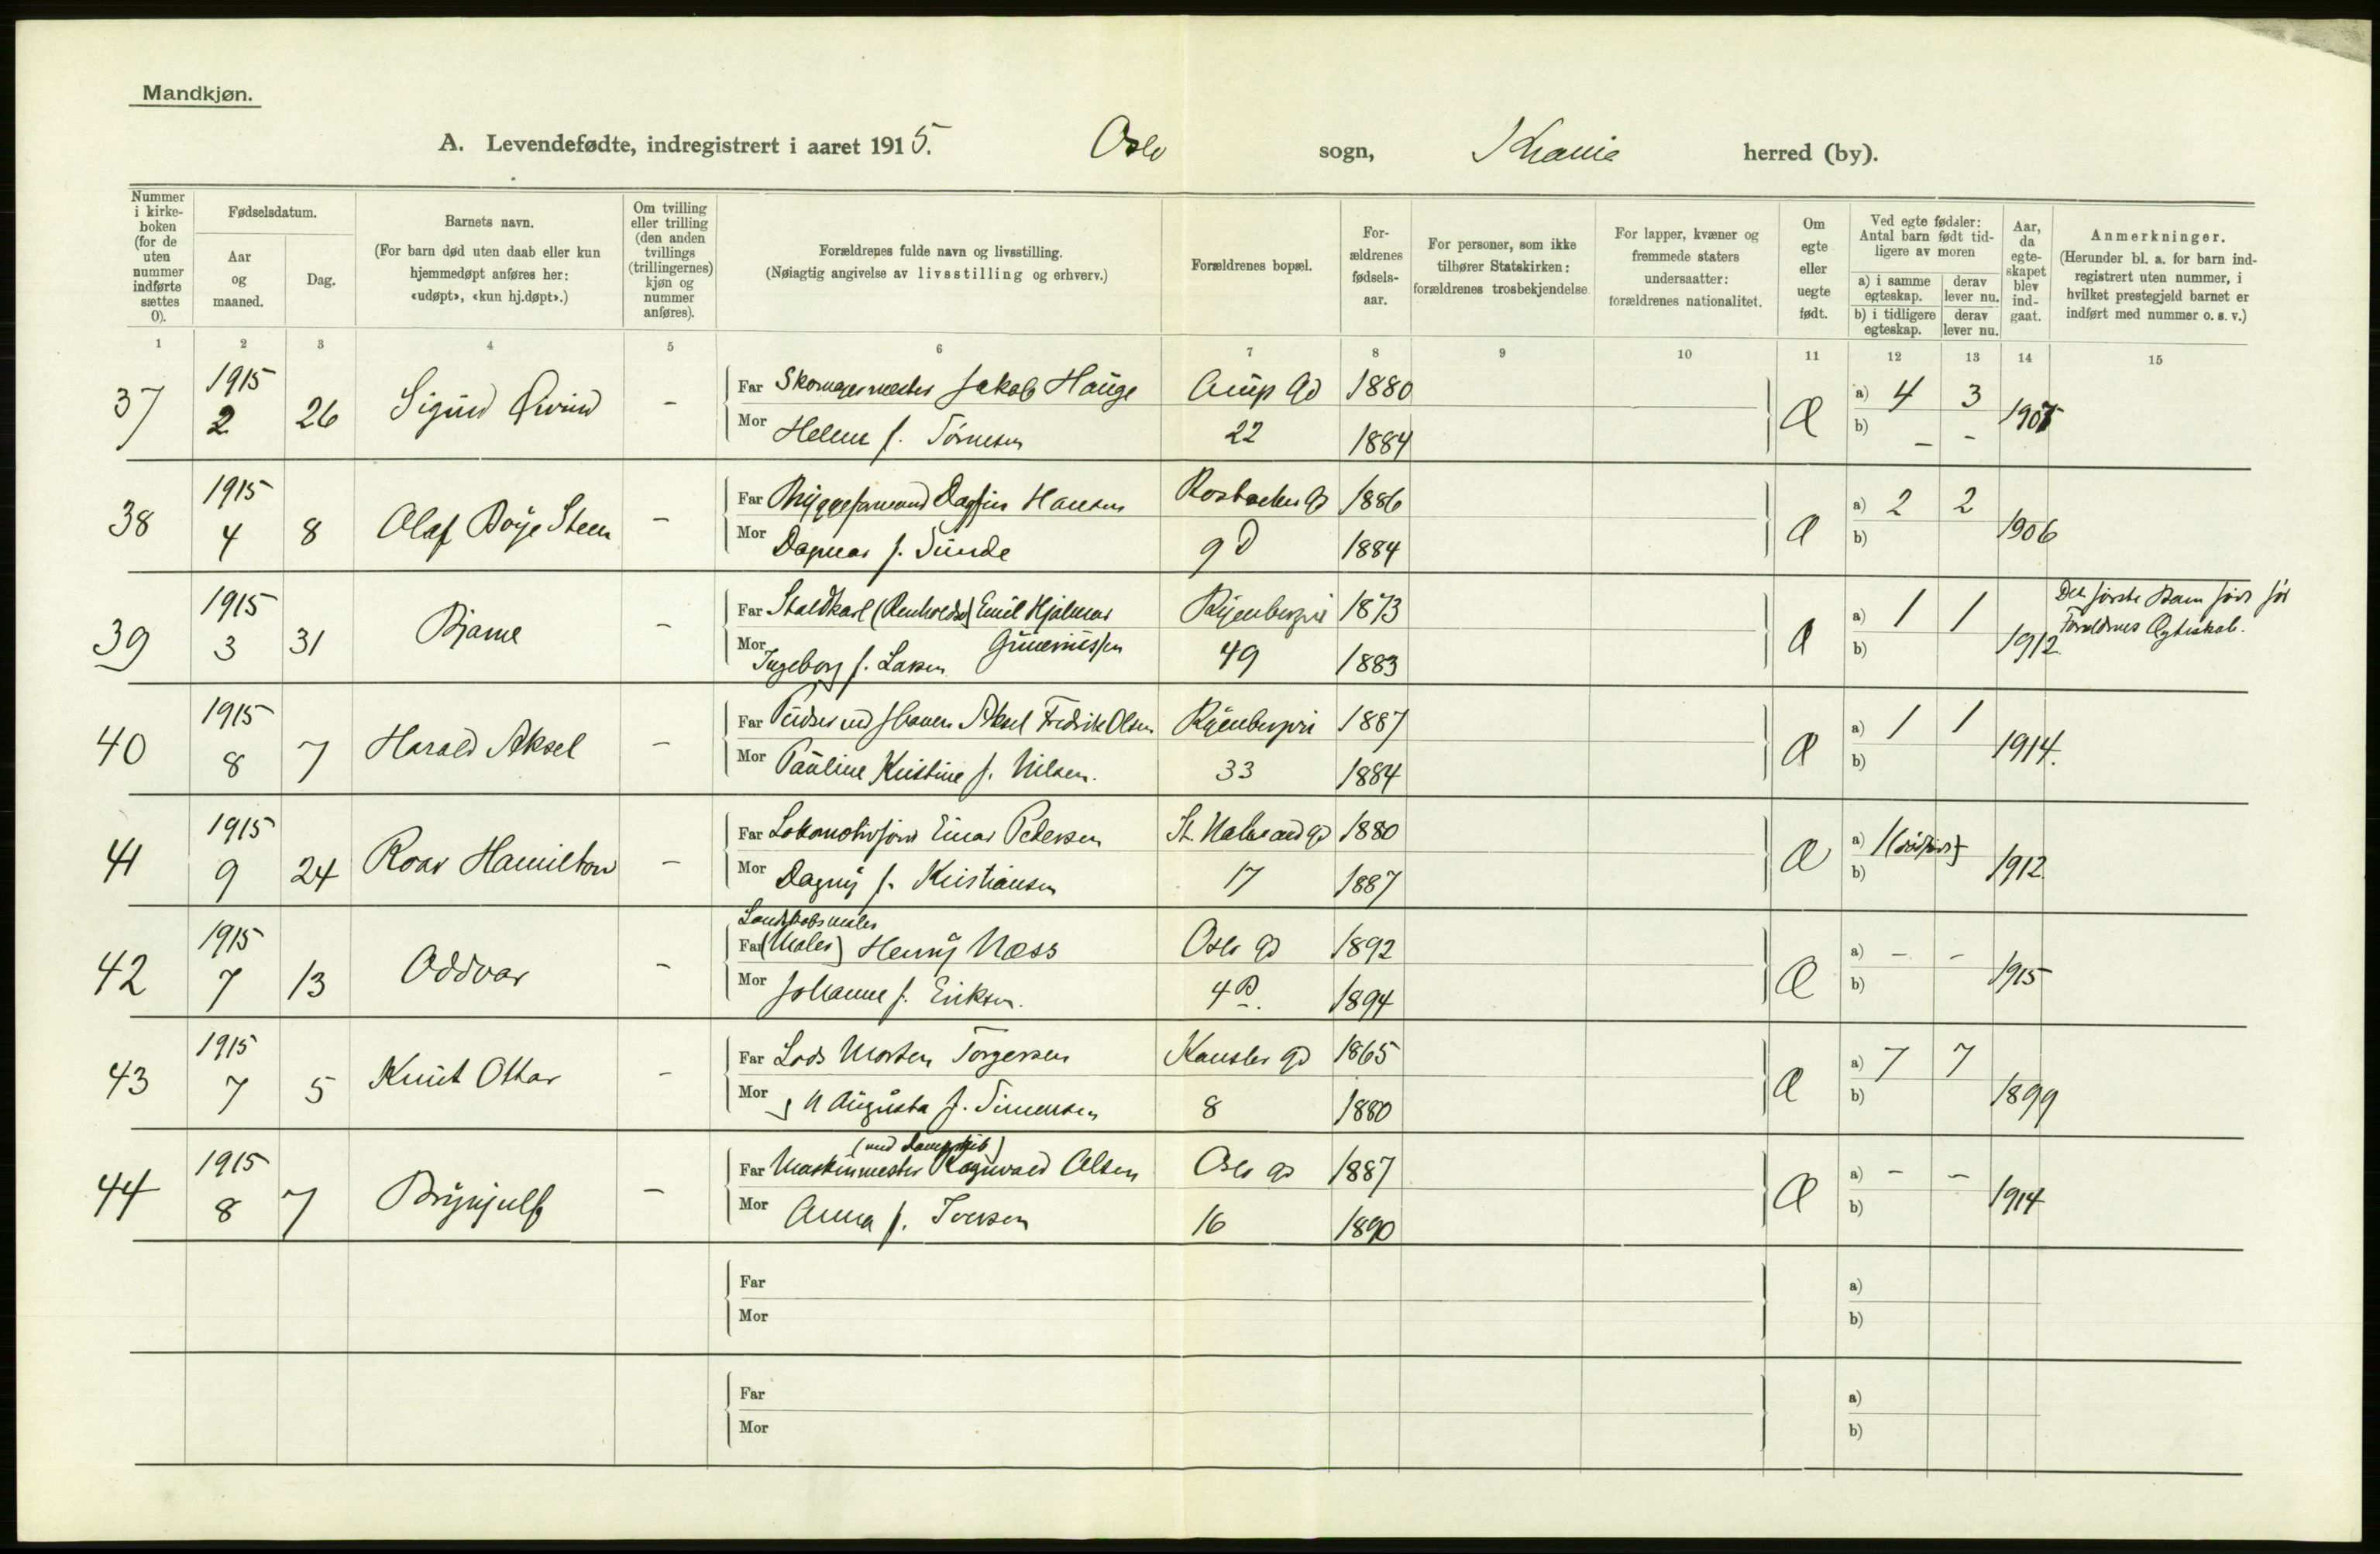 Mandkjøn.
A. Levendefødte, indregistrert i aaret 1915. Oslo sogn, Krania herred (by).
Nummer i kirke-boken (for de uten nummer indførte sættes 0).
Fødselsdatum.
Aar og maaned.
Dag.
Barnets navn.
(For barn død uten daab eller kun hjemmedøpt anføres her: «udøpt», «kun hj.døpt».)
Om tvilling eller trilling (den anden tvillings (trillingernes) kjøn og nummer anføres).
Forældrenes fulde navn og livsstilling.
(Nøiagtig angivelse av livsstilling og erhverv.)
Forældrenes bopæl.
For-ældrenes fødsels-aar.
For personer, som ikke tilhører Statskirken: forældrenes trosbekjendelse
For lapper, kvæner og fremmede staters undersaatter: forældrenes nationalitet.
Om egte eller uegte født.
Ved egte fødsler: Antal barn født tid-ligere av moren
a) i samme egteskap.
derav lever nu.
b) i tidligere egteskap.
derav lever nu.
Aar, da egte-skapet blev ind-gaat.
Anmerkninger.
(Herunder bl. a. for barn ind-registrert uten nummer, i hvilket prestegjeld barnet er indført med nummer o. s. v.)
1 2 3 4 5 6 7 8 9 10 11 12 13 14 15
37 1915 2 26 Sigurd Øivind –
Far Skomagermester Jakob Hauge
Mor Helene f. Tørnesen
22 1880 1884 Æ a) 4 3 b) – –
38 1915 4 8 Olaf Boye Steen –
Far Bryggeformand Dagfin Hansen
Mor Dagmar f. Sunde
9 D 1886 1884 Æ a) 2 2 b) 1906
39 1915 3 31 Bjarne –
Far Staldkarl (Renholdsv) Emil Hjalmar Guneriussen
Mor Ingeborg f. Larsen
49 1873 1883 Æ a) 1 1 b) 1912
Det første Barn født før Forældrenes Ægteskab.
40 1915 8 7 Harald Aksel –
Far Pudser ved Aksel Fredrik Olsen
Mor Pauline Kristine f. Nilsen.
33 1887 1884 Æ a) 1 1 b) 1914.
41 1915 9 24 Roar Hamilton –
Far Lokomotivfører Einar Pedersen
Mor Dagny f. Kristiansen
St. Halvard gd 17 1880 1887 Æ a) 1 (dødfødt) b) 1912
42 1915 7 13 Oddvar –
Landskabsmaler
Far (Maler) Henry Næss
Mor Johanne f. Eriksen.
Oslo gd 4 B. 1892 1894 Æ a) – – b) 1915
43 1915 7 5 Knut Ottar –
Far Lods Morten Torgersen
Mor Augusta f. Simensen
Kansler gd 8 1865 1880 Æ a) 7 7 b) 1899
44 1915 8 7 Brynjulf –
(ved Dampskib)
Far Maskinmester Ragnvald Olsen
Mor Anna f. Iversen
Oslo gd 16 1887 1890 Æ a) – – b) 1914
Far
Mor
a)
b)
Far
Mor
a)
b)